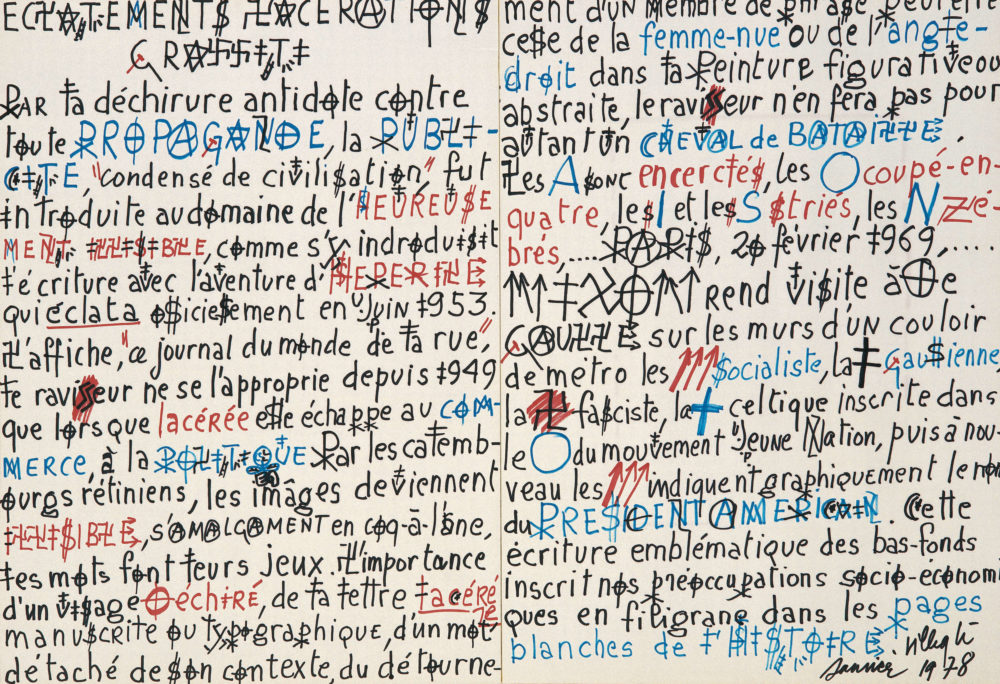 ECLATEMENTS LACERATIONS
PAR la déchirure antidote contre
toute PROPAGANDE, la PUBLI-
CITE, "condensé de civilisation" fut
introduite au domaine de l'HEUREUSE
MENT ILLISIBLE, comme s'y indroduisit
l'écriture avec l'aventure d'HEPERILE
qui éclata officiellement en Juin 1953.
L'affiche, "ce journal du monde de la rue,"
le ravisseur ne se l'approprie depuis 1949
que lorsque lacérée elle échappe au COM-
MERCE, à la POLITIQUE. Par les calemb-
ourgs rétiniens, les images deviennent
ILLISIBLE, s'AMALGAMENT en coq-à-l'âne,
les mots font leurs jeux. L'importance
d'un visage déchiré, de la lettre lacéré
manuscrite ou typographique, d'un mot
détaché de son contexte, du détourne-
ment d'un membre de phrase peut être
celle de la femme-nue ou de l'angle-
droit dans la peinture figurative ou
abstraite, le ravisseur n'en fera pas pour
autant un CHEVAL de BATAILLE.
Les A sont encerclés, les O coupé-en-
quatre, les I et les S striés, les N zé-
brés,.... PARIS, 20 février 1969,.....
NIXON rend visite à De
GAULLE sur les murs d'un couloir
de métro les ↑↑↑ socialiste, la ‡ gaullienne,
la 卐 fasciste, la + celtique inscrite dans
le O du mouvement Jeune Nation, puis à nou-
veau les ↑↑↑ indiquent graphiquement le nom
du PRESIDENT AMERICAIN. Cette
écriture emblématique des bas-fonds
inscrit nos préoccupations socio-économi
ques en filigrane dans les pages
blanches de l'HISTOIRE. Villeglé
Janvier 1978